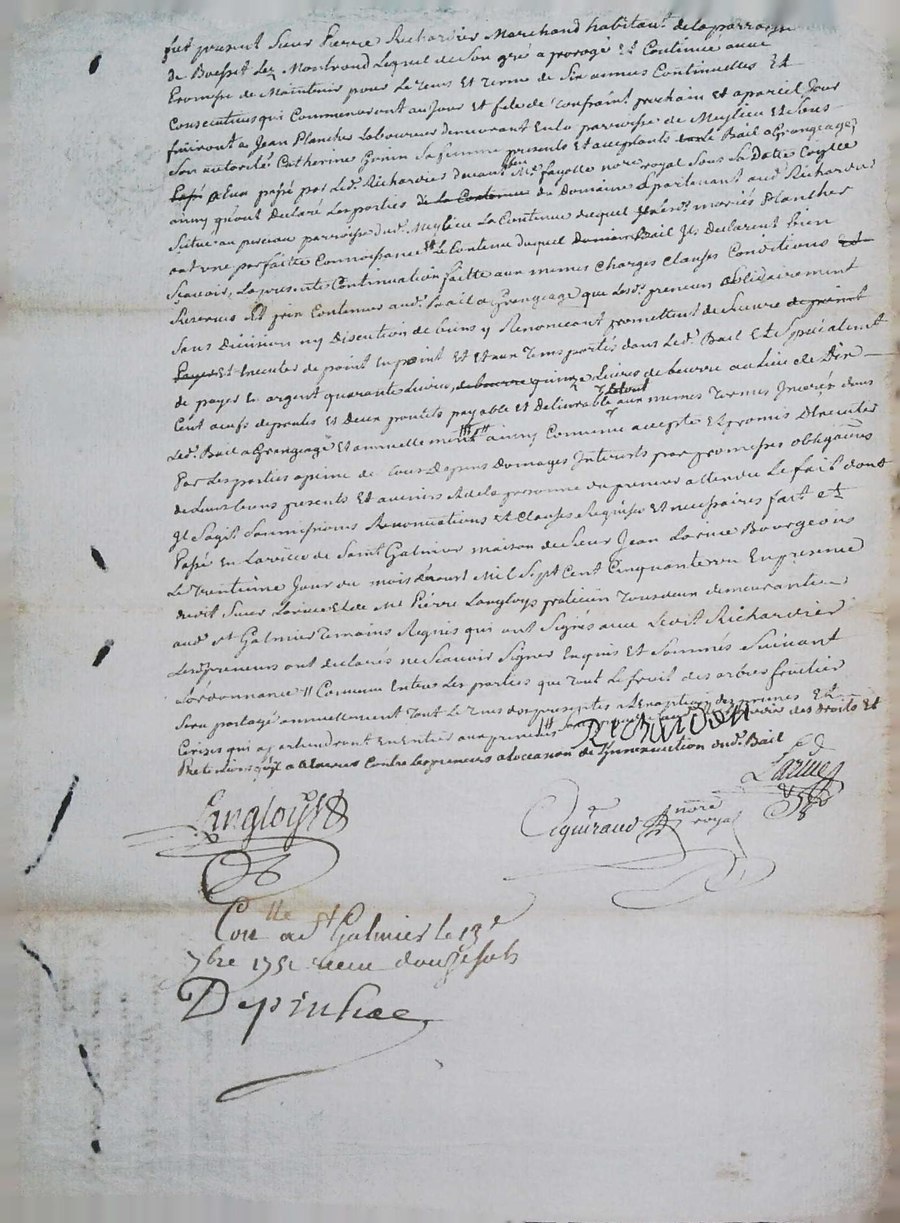 fut present Sieur Pierre Richardier Marchand habitant de la parroisse
de Boesset Lez Montrond Lequel de Son gré a prorogé Et Continué avec
Promesse de Maintenir pour Le tems Et terme de Six années Continuelles Et
Consecutives qui Commenceront au Jour Et fete de toussaint prochain Et a pareil Jour
finiront a Jean Planchet Laboureur demeurant En la parroisse de Meylieu Et Sous
Son autorité Catherine Sa femme presents Et acceptants Le Bail a Grangeage
passé par Led. Richardier devant Me. fayolle nore royal Sous Sa Datte Coy Le
ainsy qu'ont Declaré Les parties de la Contenue du Domaine apartenant aud. Richardier
Situé au parroisse dud. Meylieu La Contenue duquel Lesd. mariés Planchet
ont une parfaitte Connoissance Et Le Contenu duquel Bail Ils Declarent bien
Scavoir, La presente Continuation faitte aux memes Charges Clauses Conditions
Reserves Et prix Contenus aud. bail a Grangeage que Lesd. preneurs Solidairement
Sans Division ny Discution de biens y Renonceant promettent de Suivre de point
Et Executer de point En point Et Et aux tems portés dans Led. Bail Et Spécialement
de payer En argent quarante Livres, quinze Livres de beurre au Lieu de Dix
Cent oeufs de poules Et Deux poulets payable Et Delivrable Le tout aux memes termes Inserés dans
Led. Bail a Grangeage Et annuellement ainsy Convenu accepté Et promis D'Executer
Par Les parties a peine de tous Depens Domages Interests par promesses obligations
de Leurs biens presents Et avenirs Et de la personne du preneur attendu Le fait dont
Il S'agit Soumissions Renonciations Et Clauses Requises Et necessaires fait Et
Passé En La ville de Saint Galmier maison du Sieur Jean Larue Bourgeois
Le trentième Jour du mois d'aoust Mil Sept Cent Cinquante un En presence
dudit Sieur Larue Et de Me Pierre Langloys praticien tous deux demeurant
aud. St Galmier temoins Requis qui ont Signés avec Ledit Richardier
Lesd. preneurs ont declarés ne Scavoir Signer Enquis Et Sommés Suivant
L'ordonnance // Convenu Entre Les parties que tout Le fruit des arbres fruitier
Sera partagé annuellement tout Le tems des presentes a L'Exception des prunes Et
Cerizes qui apartiendront En Entier aux preneurs des droits Et
Pretentions qu'il a Contre Les preneurs a L'occasion de L'Inexecution dud. Bail
Richardier
Larue
Langloys
Peguiraud nore royal
Conlle a St Galmier le 13e
7bre 1751 recu douze sols
Depinhac